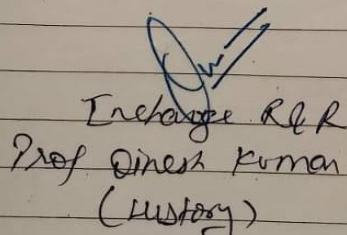 Incharge R&R
Prof Dinesh Kumar
(History)